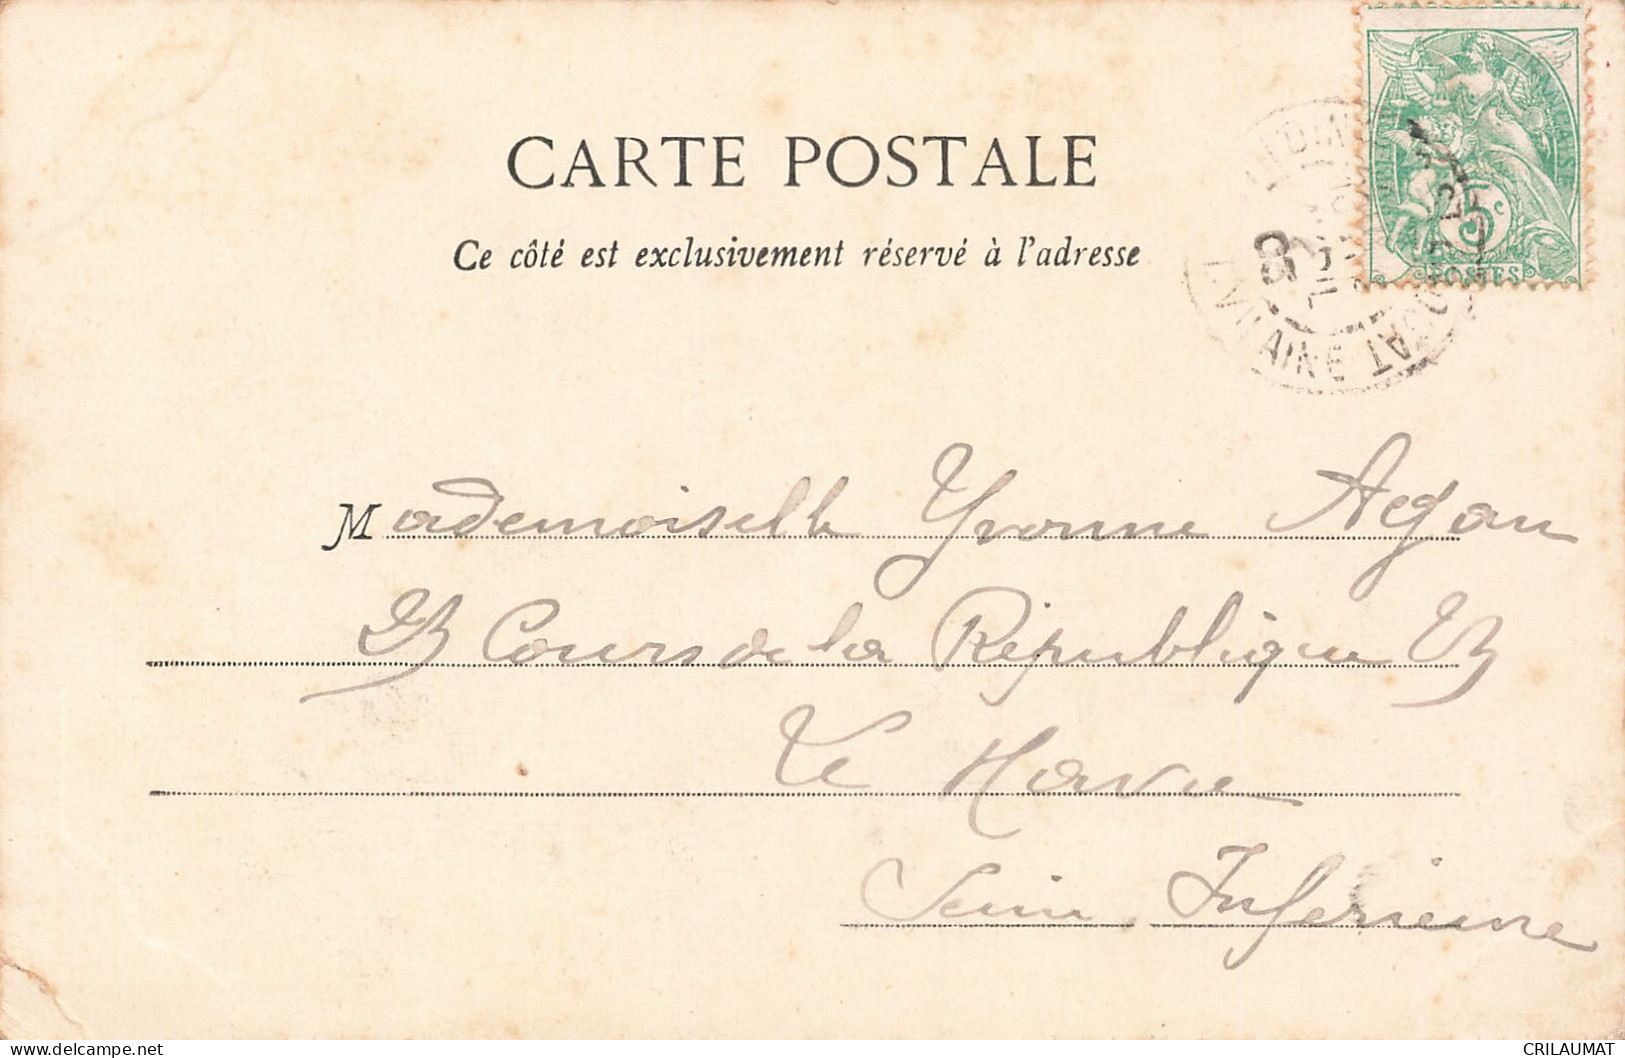 CARTE POSTALE
Ce côté est exclusivement réservé à l'adresse
5c
POSTES
Mademoiselle Yvonne
23 Cours de la République 23
Le Havre
Seine Inférieure
delcampe.net
CRILAUMAT